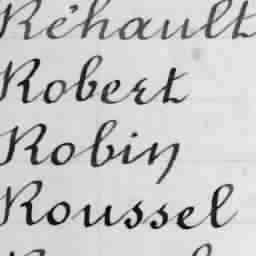 Réhault
Robert
Robin
Roussel